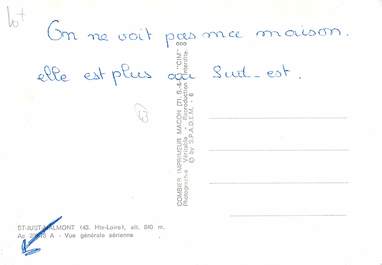 lot
On ne voit pas ma maison.
elle est plus au Sud-est.
COMBIER IMPRIMEUR MACON (71. S.-&-L.) "CIM"
Photographie Véritable - Reproduction Interdite
© by S.P.A.D.E.M.
ST-JUST-MALMONT (43. Hte-Loire), alt. 840 m.
A - Vue générale aérienne.